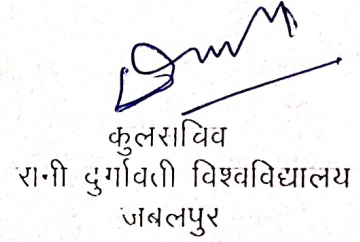 कुलसचिव
रानी दुर्गावती विश्वविद्यालय
जबलपुर